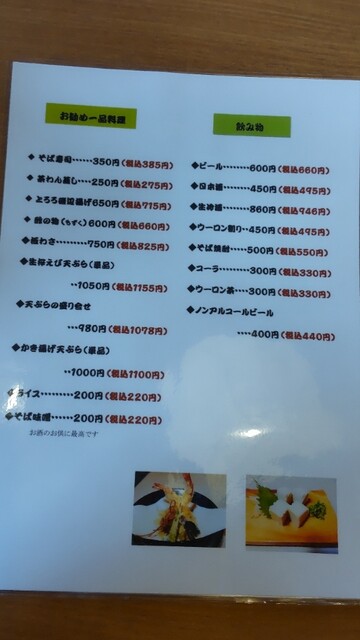 お勧め一品料理
◆そば寿司……350円(税込385円)
◆茶わん蒸し…‥250円(税込275円)
◆とろろ磯辺揚げ650円(税込715円)
◆酢の物(もずく)600円(税込660円)
◆板わさ………750円(税込825円)
◆生桜えび天ぷら(単品)
‥1050円(税込1155円)
◆天ぷらの盛り合せ
…980円(税込1078円)
◆かき揚げ天ぷら(単品)
‥1000円(税込1100円)
◆ライス………200円(税込220円)
◆そば味噌……200円(税込220円)
お酒のお供に最高です
飲み物
◆ビール………600円(税込660円)
◆日本酒………450円(税込495円)
◆生冷酒………860円(税込946円)
◆ウーロン割り‥450円(税込495円)
◆そば焼酎……500円(税込550円)
◆コーラ………300円(税込330円)
◆ウーロン茶…‥300円(税込330円)
◆ノンアルコールビール
‥‥400円(税込440円)